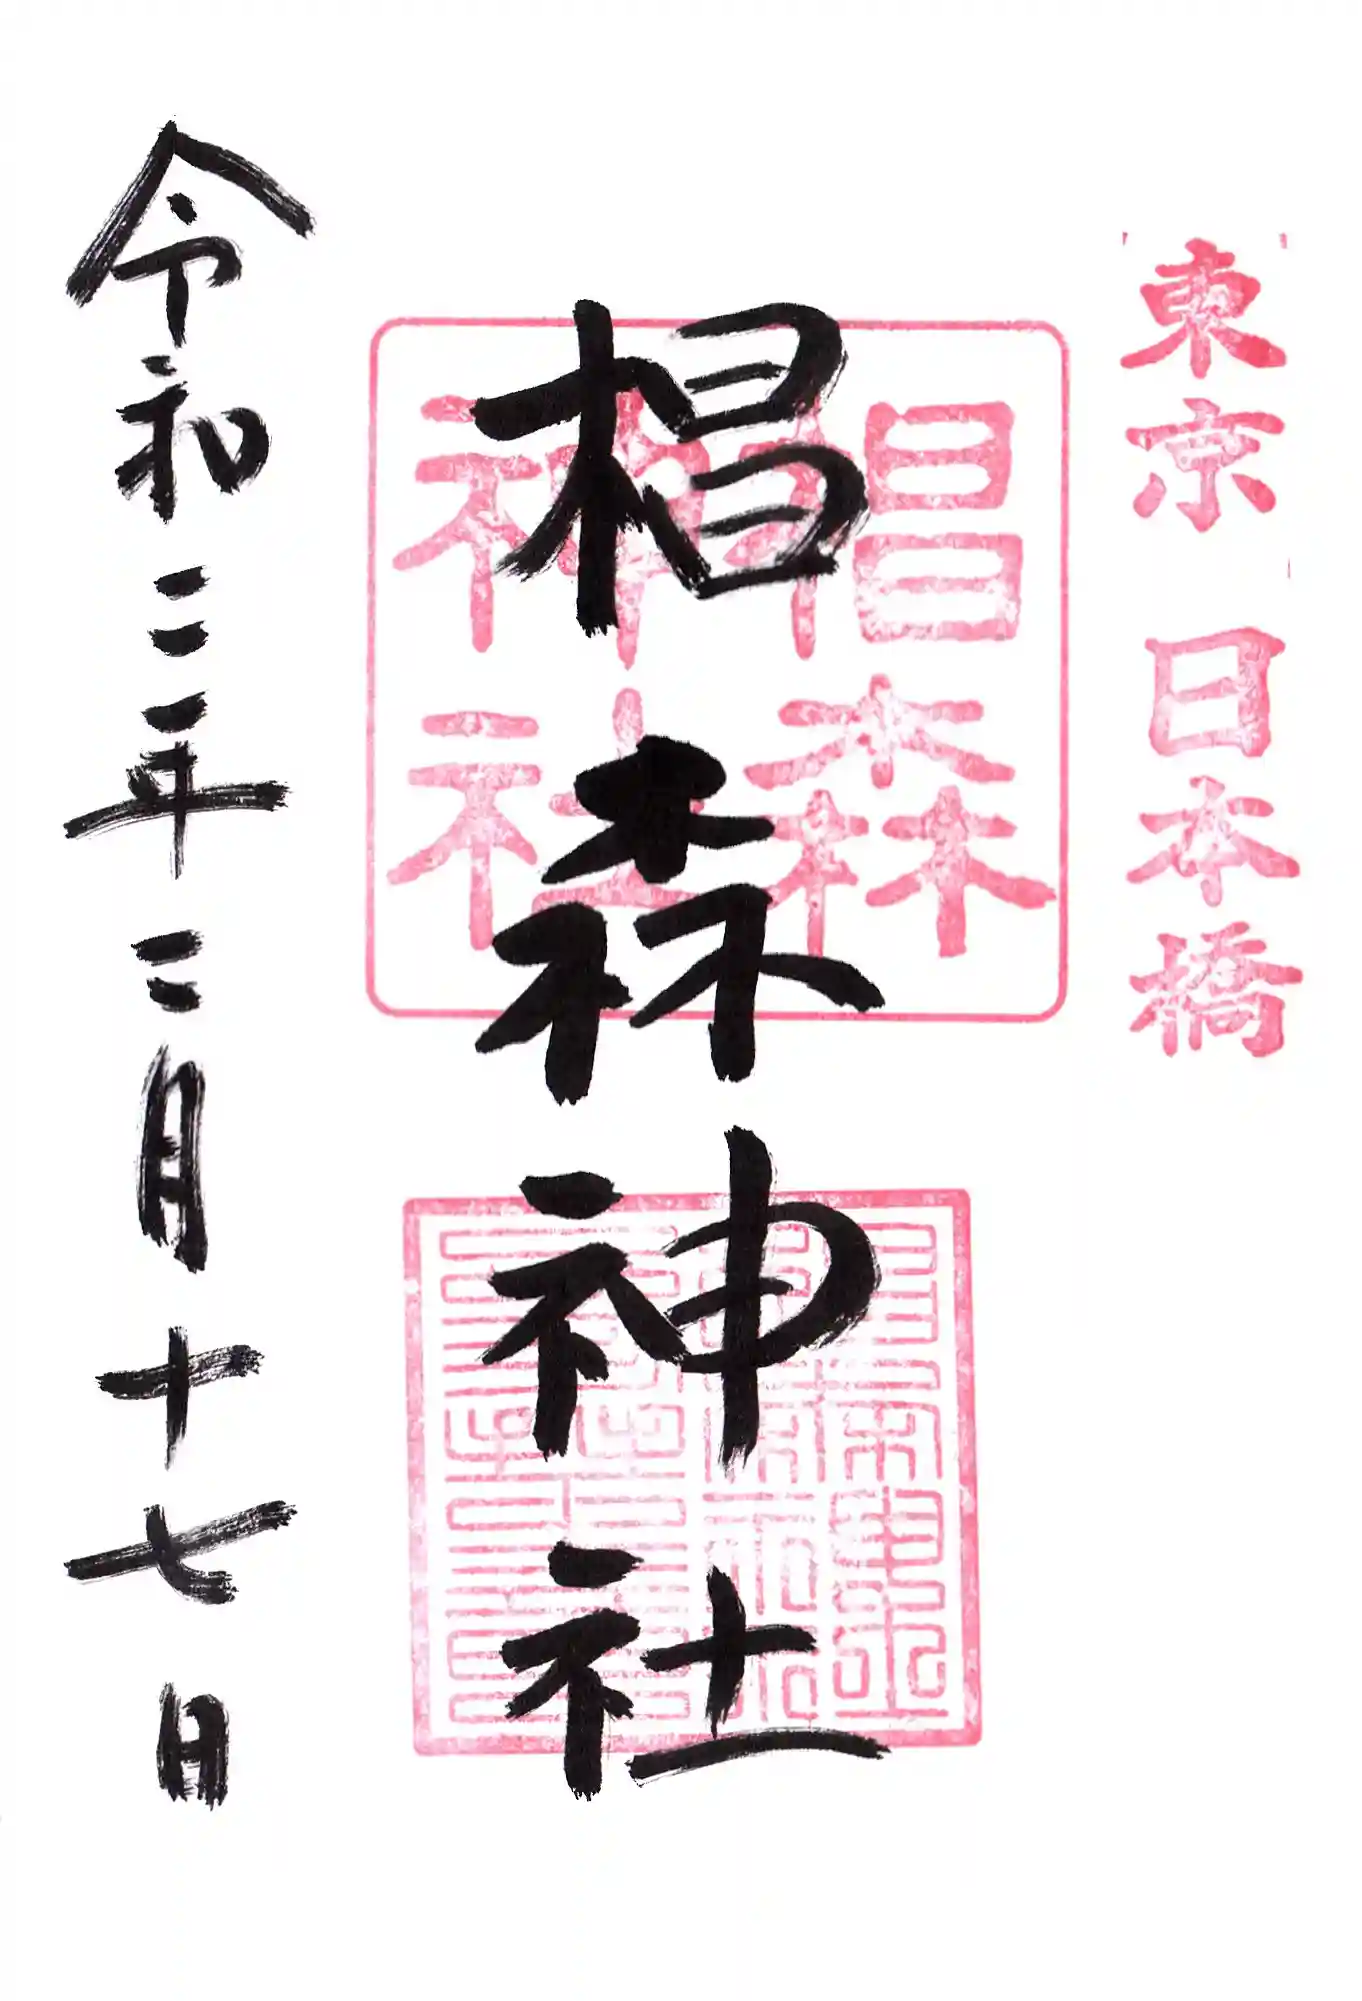 東京 日本橋
椙森
神社
椙森神社
令和二年二月十七日